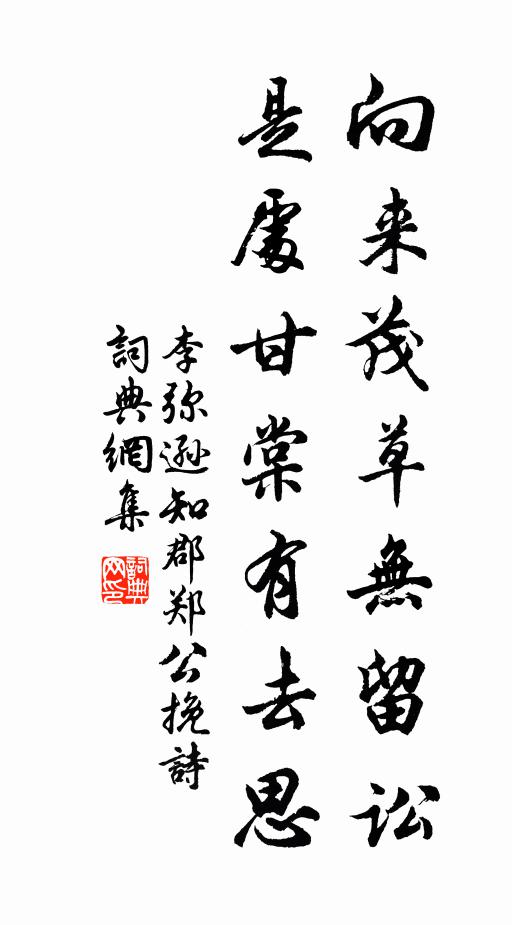 向来茂草無留訟
是處甘棠有去思
李弥遜知郡郑公挽詩
詞典網集
詞典网印